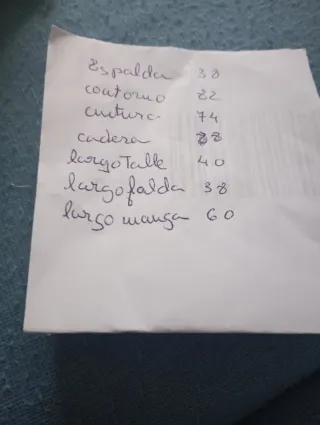 Espalda 38
contorno 82
cintura 74
cadera 88
largo Talle 40
largo falda 38
largo manga 60